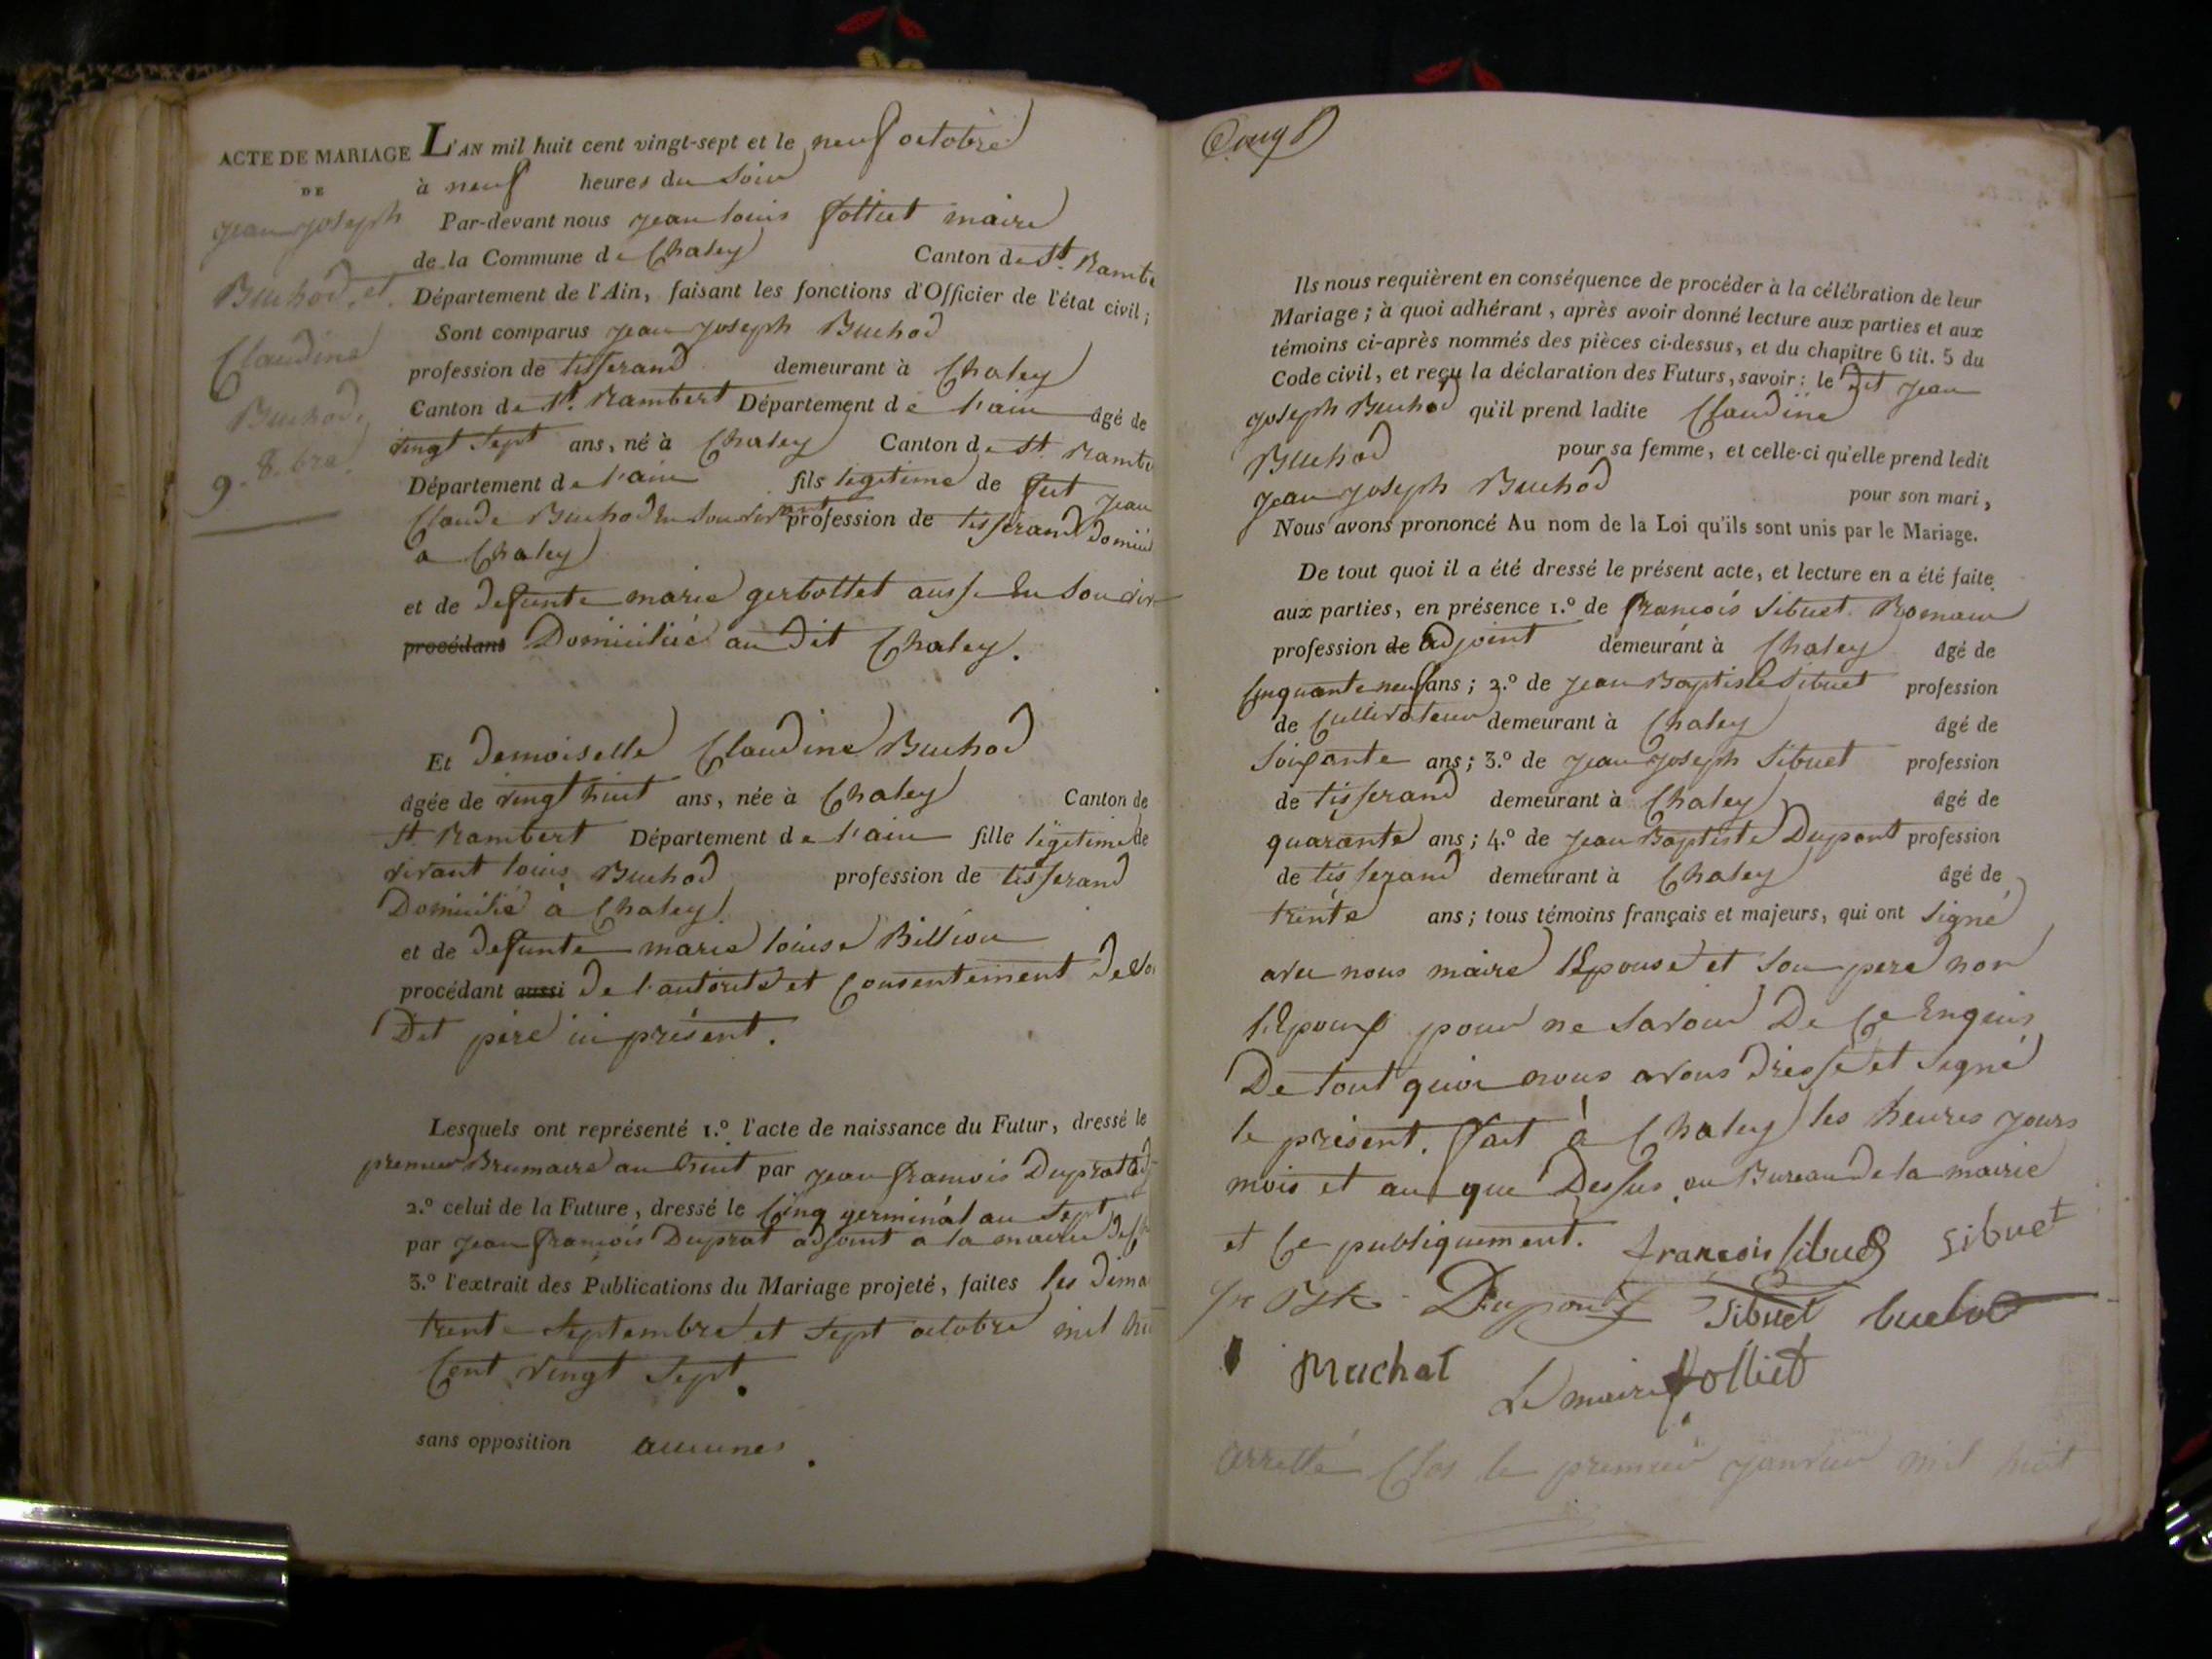 ACTE DE MARIAGE
DE
jean joseph
Buchod et
Claudine
Buchod
9. 8.bre
L'AN mil huit cent vingt-sept et le neuf octobre
à neuf heures du soir
Par-devant nous jean louis folliet maire
de la Commune de Chaley Canton de St. Rambe
Département de l'Ain, faisant les fonctions d'Officier de l'état civil;
Sont comparus jean joseph Buchod
profession de tisserand demeurant à Chaley
Canton de St. Rambert Département de l'ain âgé de
vingt sept ans, né à Chaley Canton de St. Rambe
Département de l'ain fils legitime de feut jean
Claude Buchod En son vivant profession de tisserand Domicil
a Chaley
et de defunte marie gerbottet aussi En son viv
procédant Domiciliée au dit Chaley.
Et demoiselle Claudine Buchod
âgée de vingt huit ans, née à Chaley Canton de
St. Rambert Département de l'ain fille légitime de
vivant louis Buchod profession de tisserand
Domicilié à Chaley
et de defunte marie louise Billion
procédant aussi de l'autorité et Consentement de So
Dit père ici présent.
Lesquels ont représenté 1.º l'acte de naissance du Futur, dressé le
premier Brumaire an huit par jean francois Duprat adj
2.º celui de la Future, dressé le Cinq germinal an Sept
par jean francois Duprat adjoint a la mairie de Ch
3.º l'extrait des Publications du Mariage projeté, faites les dima
trente Septembre et Sept octobre mil hui
Cent vingt Sept.
sans opposition aucunes.
Ils nous requièrent en conséquence de procéder à la célébration de leur
Mariage; à quoi adhérant, après avoir donné lecture aux parties et aux
témoins ci-après nommés des pièces ci-dessus, et du chapitre 6 tit. 5 du
Code civil, et reçu la déclaration des Futurs, savoir: le dit jean
joseph Buchod qu'il prend ladite Claudine
Buchod pour sa femme, et celle-ci qu'elle prend ledit
jean joseph Buchod pour son mari,
Nous avons prononcé Au nom de la Loi qu'ils sont unis par le Mariage.
De tout quoi il a été dressé le présent acte, et lecture en a été faite
aux parties, en présence 1.º de francois Sibuet Romain
profession de adjoint demeurant à Chaley âgé de
Cinquante neuf ans; 2.º de jean Baptiste Sibuet profession
de Cultivateur demeurant à Chaley âgé de
Soixante ans; 3.º de jean joseph Sibuet profession
de tisserand demeurant à Chaley âgé de
quarante ans; 4.º de jean Baptiste Dupont profession
de tisserand demeurant à Chaley âgé de
trente ans; tous témoins français et majeurs, qui ont Signé
avec nous maire l'Epouse et Son pere non
l'Epoux pour ne Savoir De Ce Enquis
De tout quoi nous avons dressé et Signé
le présent. fait à Chaley les heures jours
mois et an que Dessus au Bureau de la mairie
et Ce publiquement. francois sibuet Sibuet
Jn Bte Dupont Sibuet buchod
Muchat Le maire folliet
arretté Clos le premier janvier mil huit